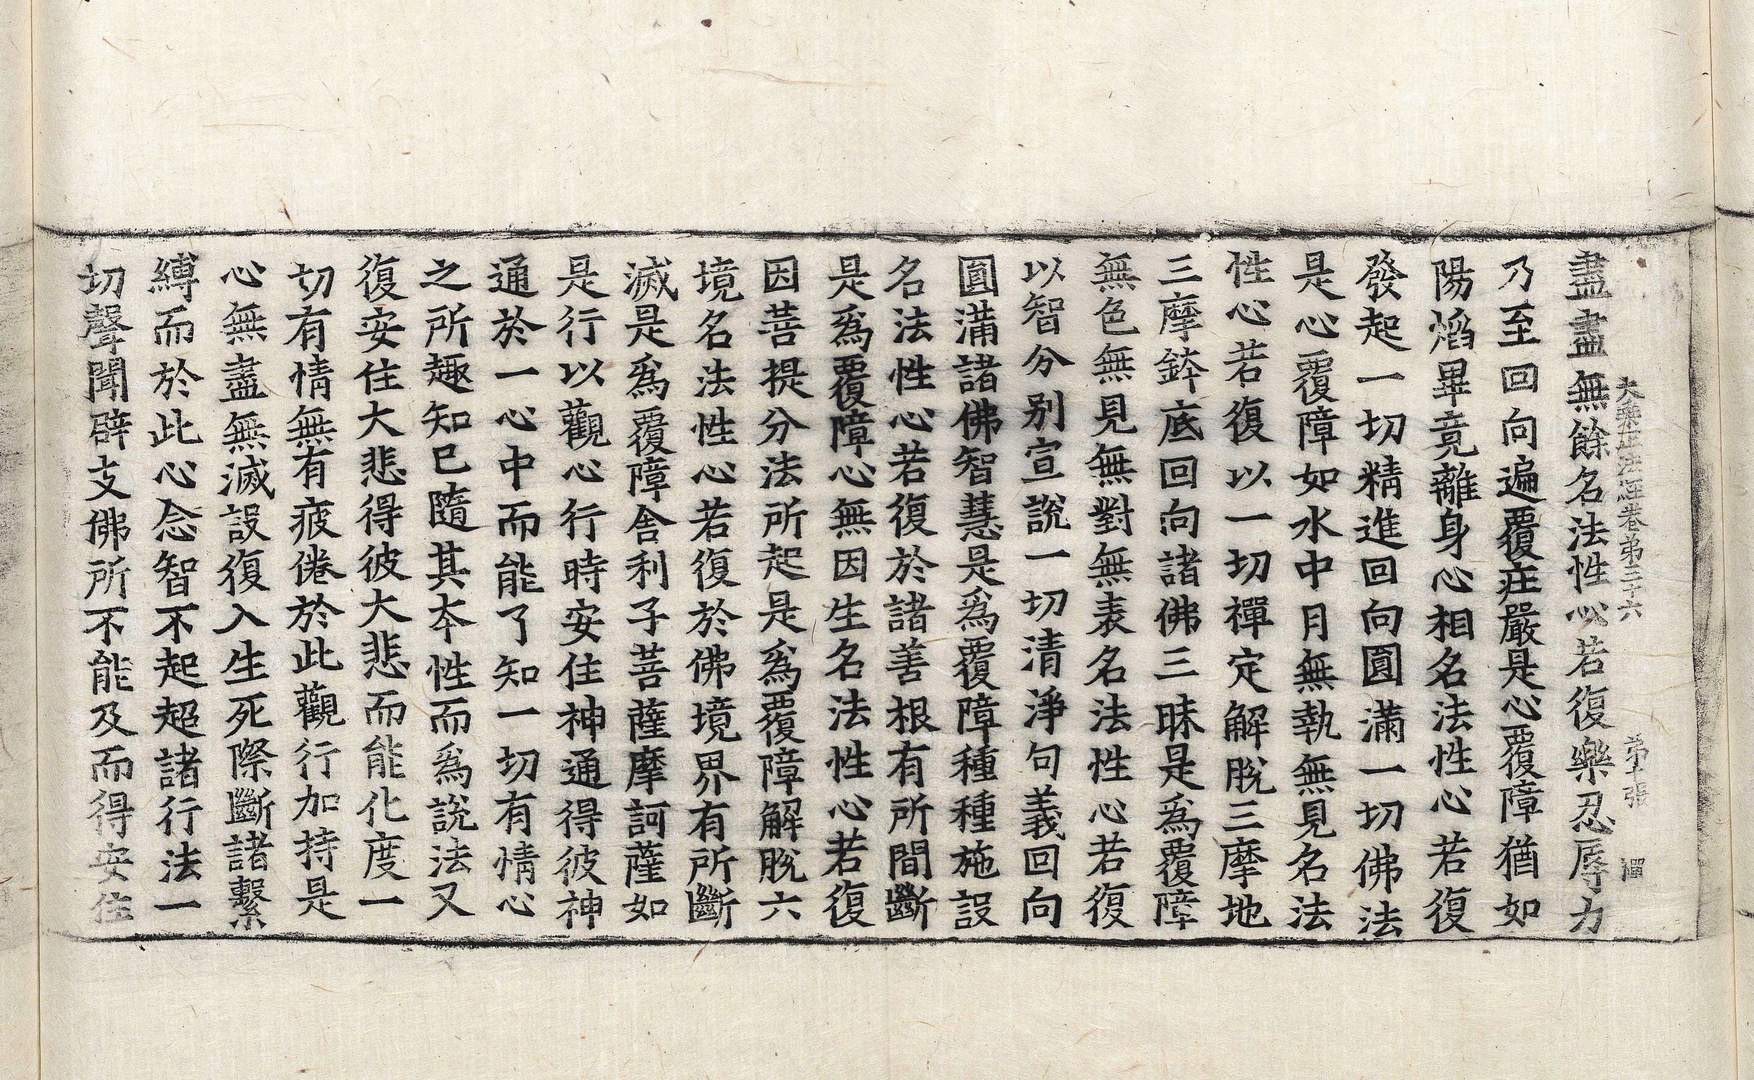 大乘正法經卷第三十六　第十張　禪
盡盡無餘名法性心若復樂忍辱力
乃至回向遍覆庄嚴是心覆障猶如
陽焰畢竟離身心相名法性心若復
發起一切精進回向圓滿一切佛法
是心覆障如水中月無執無見名法
性心若復以一切禪定解脫三摩地
三摩鉢底回向諸佛三昧是爲覆障
無色無見無對無表名法性心若復
以智分別宣說一切清淨句義回向
圓滿諸佛智慧是爲覆障種種施設
名法性心若復於諸善根有所間斷
是爲覆障心無因生名法性心若復
因菩提分法所起是爲覆障解脫六
境名法性心若復於佛境界有所斷
滅是爲覆障舍利子菩薩摩訶薩如
是行以觀心行時安住神通得彼神
通於一心中而能了知一切有情心
之所趣知已隨其本性而爲說法又
復安住大悲得彼大悲而能化度一
切有情無有疲倦於此觀行加持是
心無盡無滅設復入生死際斷諸繫
縛而於此心念智不起超諸行法一
切聲聞辟支佛所不能及而得安住